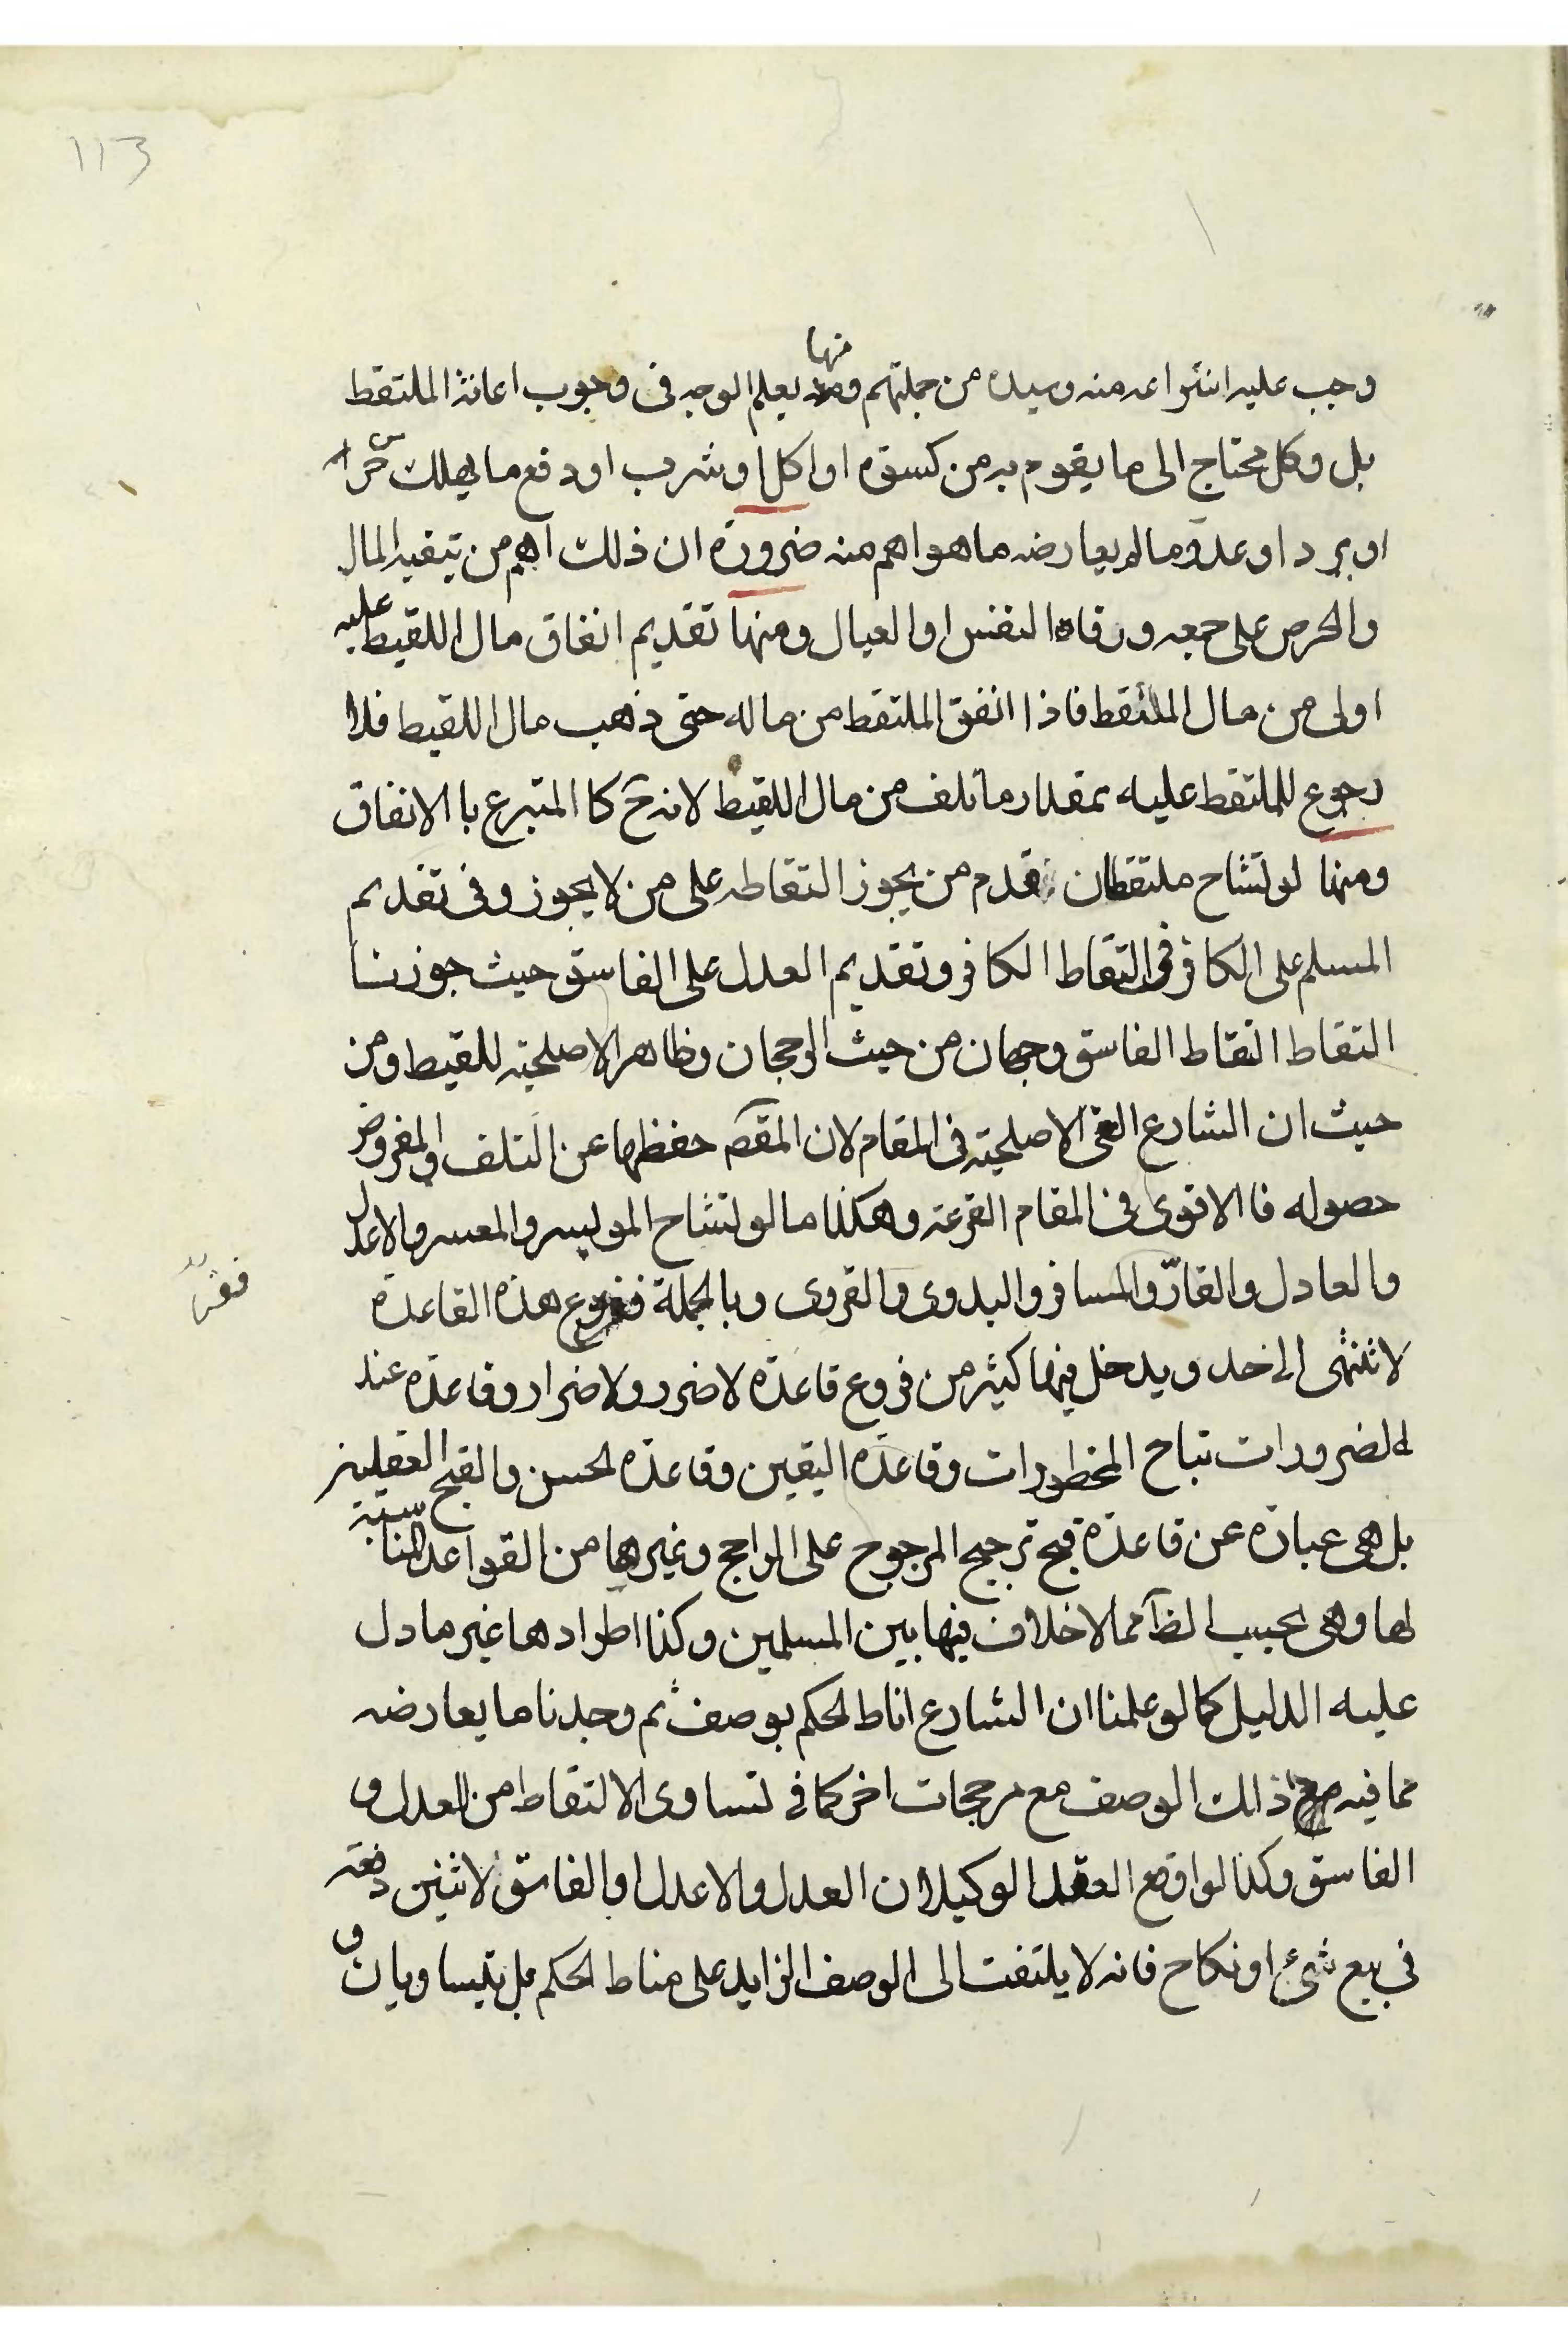 113
وجب عليه انتزاعه منه وسيده من جملتهم ومنها يعلم الوجه فى وجوب اعانة الملتقط
بل وكل محتاج الى ما يقوم به من كسوة او اكل او شرب او دفع ما يهلك من حر
او برد او عدو مالم يعارضه ما هو اهم منه ضرورة ان ذلك اهم من تبقية المال
والحرص على جمعه ورفاه النفس او العيال ومنها تقديم انفاق مال اللقيط عليه
اولى من مال الملتقط فاذا انفق الملتقط من ماله حتى ذهب مال اللقيط فلا
رجوع للملتقط عليه بمقدار ما تلف من مال اللقيط لانه ح كا المتبرع با الانفاق
ومنها لو تشاح ملتقطان قدم من يجوز التقاطه على من لا يجوز وفى تقديم
المسلم على الكافر فى التقاط الكافر وتقديم العدل على الفاسق حيث جوزنا
التقاط التقاط الفاسق وجهان من حيث الرجحان وظاهر الاصلحية للقيط ومن
حيث ان الشارع الغى الاصلحية فى المقام لان المقصم حفظها عن التلف والمفروض
حصوله فا الاقوى فى المقام القرعة وهكذا ما لو تشاح الموليسر والمعسر والاعدل
والعادل والقارّ والمسافر والبدوى والقروى وبالجملة ففروع هذه القاعدة
لا تنتهى الى حد ويدخل فيها كثير من فروع قاعدة لا ضرر ولا ضرار وقاعدة عند
الضرورات تباح المحظورات وقاعدة اليقين وقاعدة الحسن والقبح العقليين
بل هى عبارة عن قاعدة قبح ترجيح المرجوح على الراجح وغيرهما من القواعد المناسبة
لها وهى بحسب الظآ مما لا خلاف فيها بين المسلمين وكذا اطرادها غير ما دل
عليه الدليل كما لو علمنا ان الشارع اناط الحكم بوصف ثم وجدنا ما يعارضه
مما فيه ذلك الوصف مع مرجحات اخر كما فى تساوى الالتقاط من العدل و
الفاسق وكذا لو اوقع العقد الوكيلان العدل والاعدل او الفاسق لاثنين دفعة
فى بيع شئ او نكاح فانه لا يلتفت الى الوصف الزايد على مناط الحكم بل يتساويان و